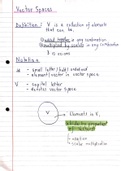 Vector Spaces
Definition: V is a collection of elements
that can be,
① added together in any combination
② multiplied by scalars in any combination
Notation
- small letter/bold/underlined
- element/vector in vector space
V - capital letter
- denotes vector space
V
Elements in V,
- addition
- scalar multiplication